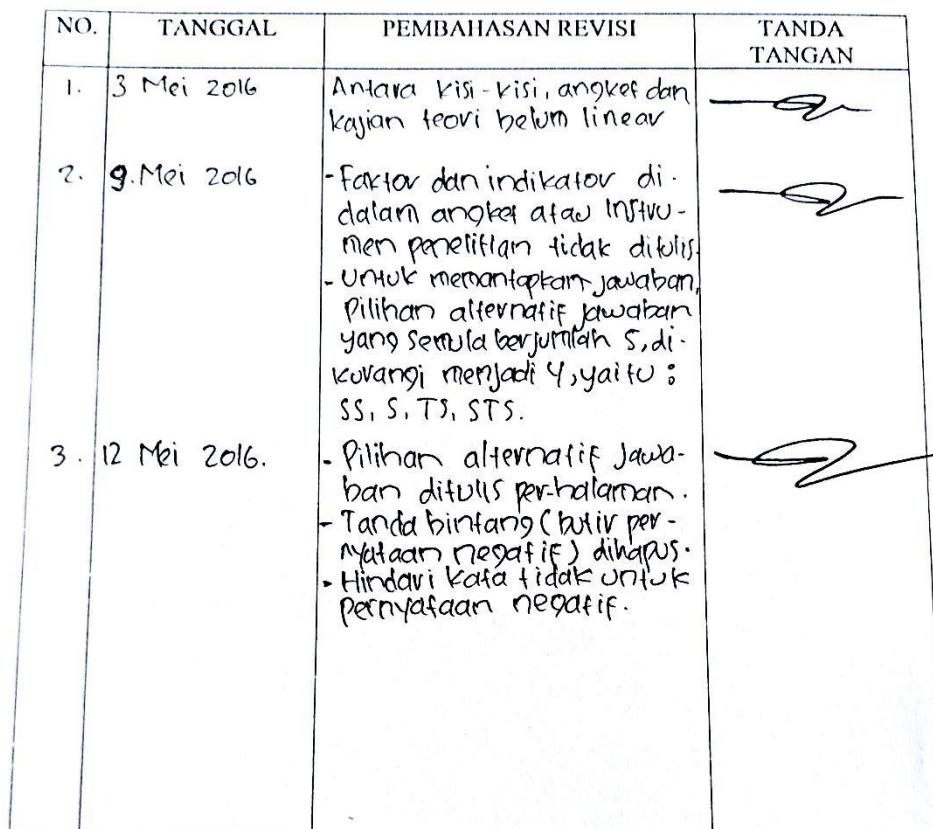 NO. TANGGAL PEMBAHASAN REVISI TANDA TANGAN
1. 3 Mei 2016 Antara kisi-kisi, angket dan
kajian teori belum linear
2. 9. Mei 2016 - Faktor dan indikator di-
dalam angket atau Instru-
men penelitian tidak ditulis.
- Untuk memantapkan jawaban,
Pilihan alternatif jawaban
yang semula berjumlah 5, di-
kurangi menjadi 4, yaitu :
SS, S, TS, STS.
3. 12 Mei 2016. - Pilihan alternatif Jawa-
ban ditulis per-halaman.
- Tanda bintang (butir per-
nyataan negatif) dihapus.
- Hindari kata tidak untuk
pernyataan negatif.